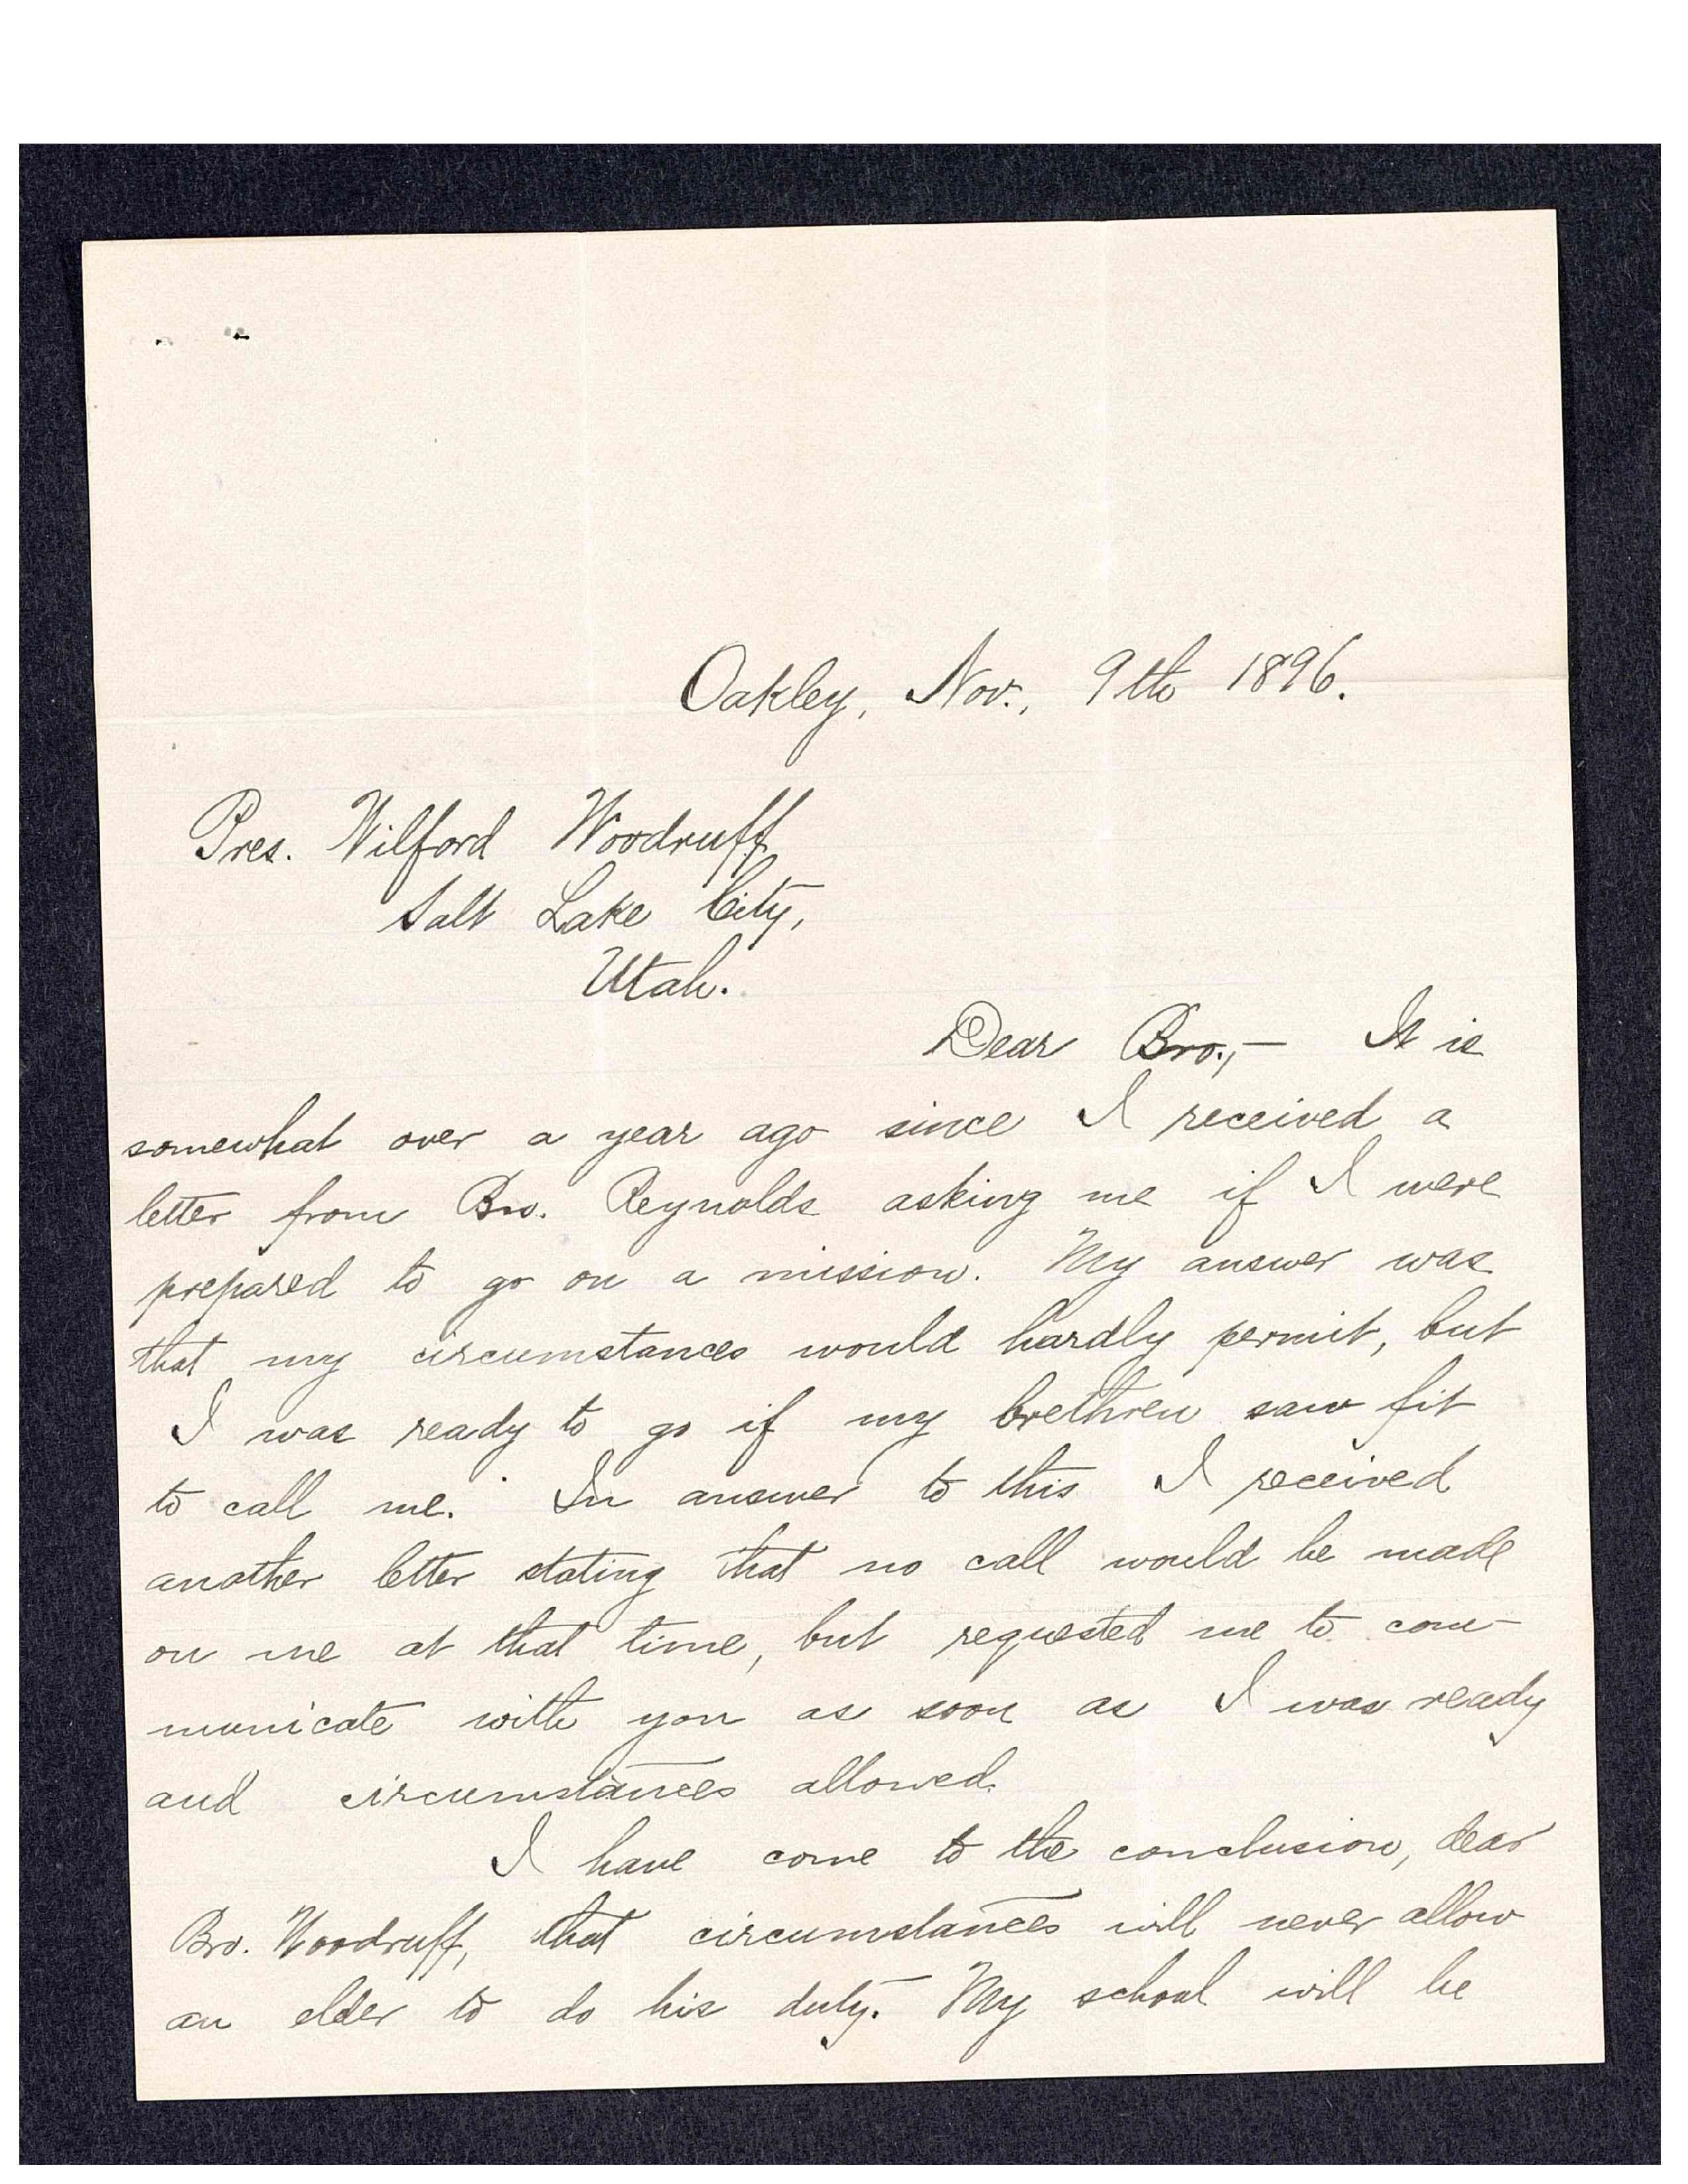 Oakley, Nov., 9th 1896.
Pres. Wilford Woodruff
Salt Lake City,
Utah.
Dear Bro.,— It is
somewhat over a year ago since I received a
letter from Bro. Reynolds asking me if I were
prepared to go on a mission. My answer was
that my circumstances would hardly permit, but
I was ready to go if my brethren saw fit
to call me. In answer to this I received
another letter stating that no call would be made
on me at that time, but requested me to com-
municate with you as soon as I was ready
and circumstances allowed.
I have come to the conclusion, dear
Bro. Woodruff, that circumstances will never allow
an elder to do his duty. My school will be